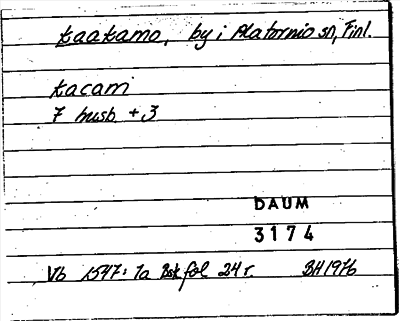 Kaakamo, by i Alatornio sn, Finl.
Kacami
7 husb. + 3
DAUM
3174
Vb 1547: 1a Bsk fol 24 r. BH 1976